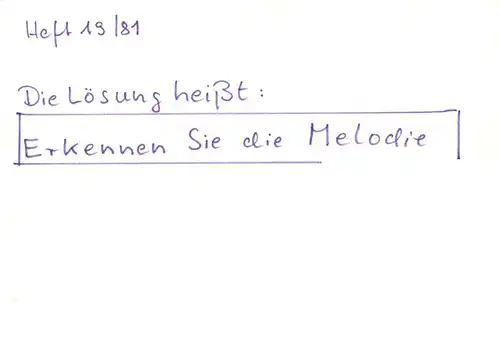 Heft 19/81
Die Lösung heißt:
Erkennen Sie die Melodie